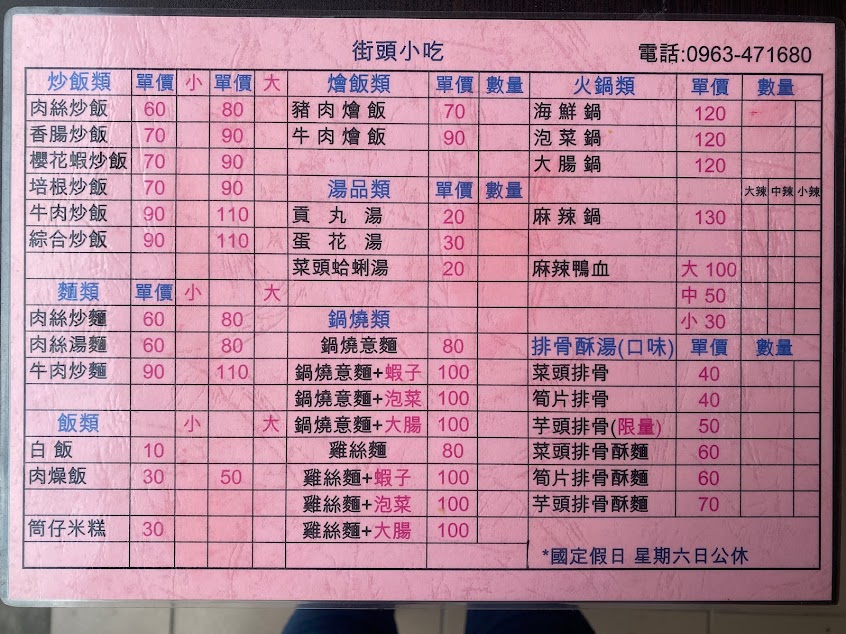 街頭小吃
電話:0963-471680
炒飯類 單價 小 單價 大
肉絲炒飯 60 80
香腸炒飯 70 90
櫻花蝦炒飯 70 90
培根炒飯 70 90
牛肉炒飯 90 110
綜合炒飯 90 110
麵類 單價 小 大
肉絲炒麵 60 80
肉絲湯麵 60 80
牛肉炒麵 90 110
飯類 小 大
白飯 10
肉燥飯 30 50
筒仔米糕 30
燴飯類 單價 數量
豬肉燴飯 70
牛肉燴飯 90
湯品類 單價 數量
貢丸湯 20
蛋花湯 30
菜頭蛤蜊湯 20
鍋燒類
鍋燒意麵 80
鍋燒意麵+蝦子 100
鍋燒意麵+泡菜 100
鍋燒意麵+大腸 100
雞絲麵 80
雞絲麵+蝦子 100
雞絲麵+泡菜 100
雞絲麵+大腸 100
火鍋類 單價 數量
海鮮鍋 120
泡菜鍋 120
大腸鍋 120
大辣 中辣 小辣
麻辣鍋 130
麻辣鴨血 大 100
中 50
小 30
排骨酥湯(口味) 單價 數量
菜頭排骨 40
筍片排骨 40
芋頭排骨(限量) 50
菜頭排骨酥麵 60
筍片排骨酥麵 60
芋頭排骨酥麵 70
*國定假日 星期六日公休